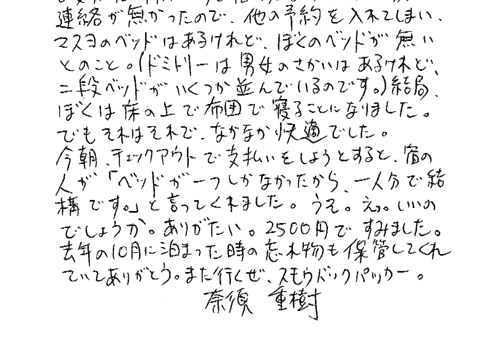 連絡が無かったので、他の予約を入れてしまい、
マスヨのベッドはあるけれど、ぼくのベッドが無い
とのこと。(ドミトリーは男女のさかいはあるけれど、
二段ベッドがいくつか並んでいるのです。)結局、
ぼくは床の上で布団で寝ることになりました。
でもそれはそれで、なかなか快適でした。
今朝、チェックアウトで支払いをしようとすると、宿の
人が「ベッドが一つしかなかったから、一人分で結
構です。」と言ってくれました。うそ。えっ。いいの
でしょうか。ありがたい。2500円ですみました。
去年の10月に泊まった時の忘れ物も保管してくれ
ていてありがとう。また行くぜ、スモウバックパッカー。
奈須 重樹